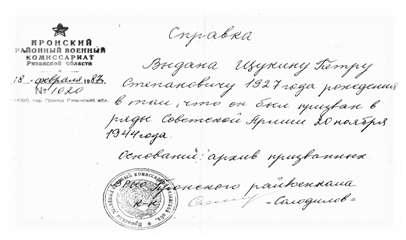 Справка
ПРОНСКИЙ
РАЙОННЫЙ ВОЕННЫЙ
КОМИССАРИАТ
Рязанской области
18 февраля 1987.
№ 1020
Выдана Щукину Петру
Степановичу 1927 года рождения
в том, что он был призван в
ряды Советской Армии 20 ноября
1944 года.
Основание: архив призванных
Пронского райвоенкома
"Солодилов"